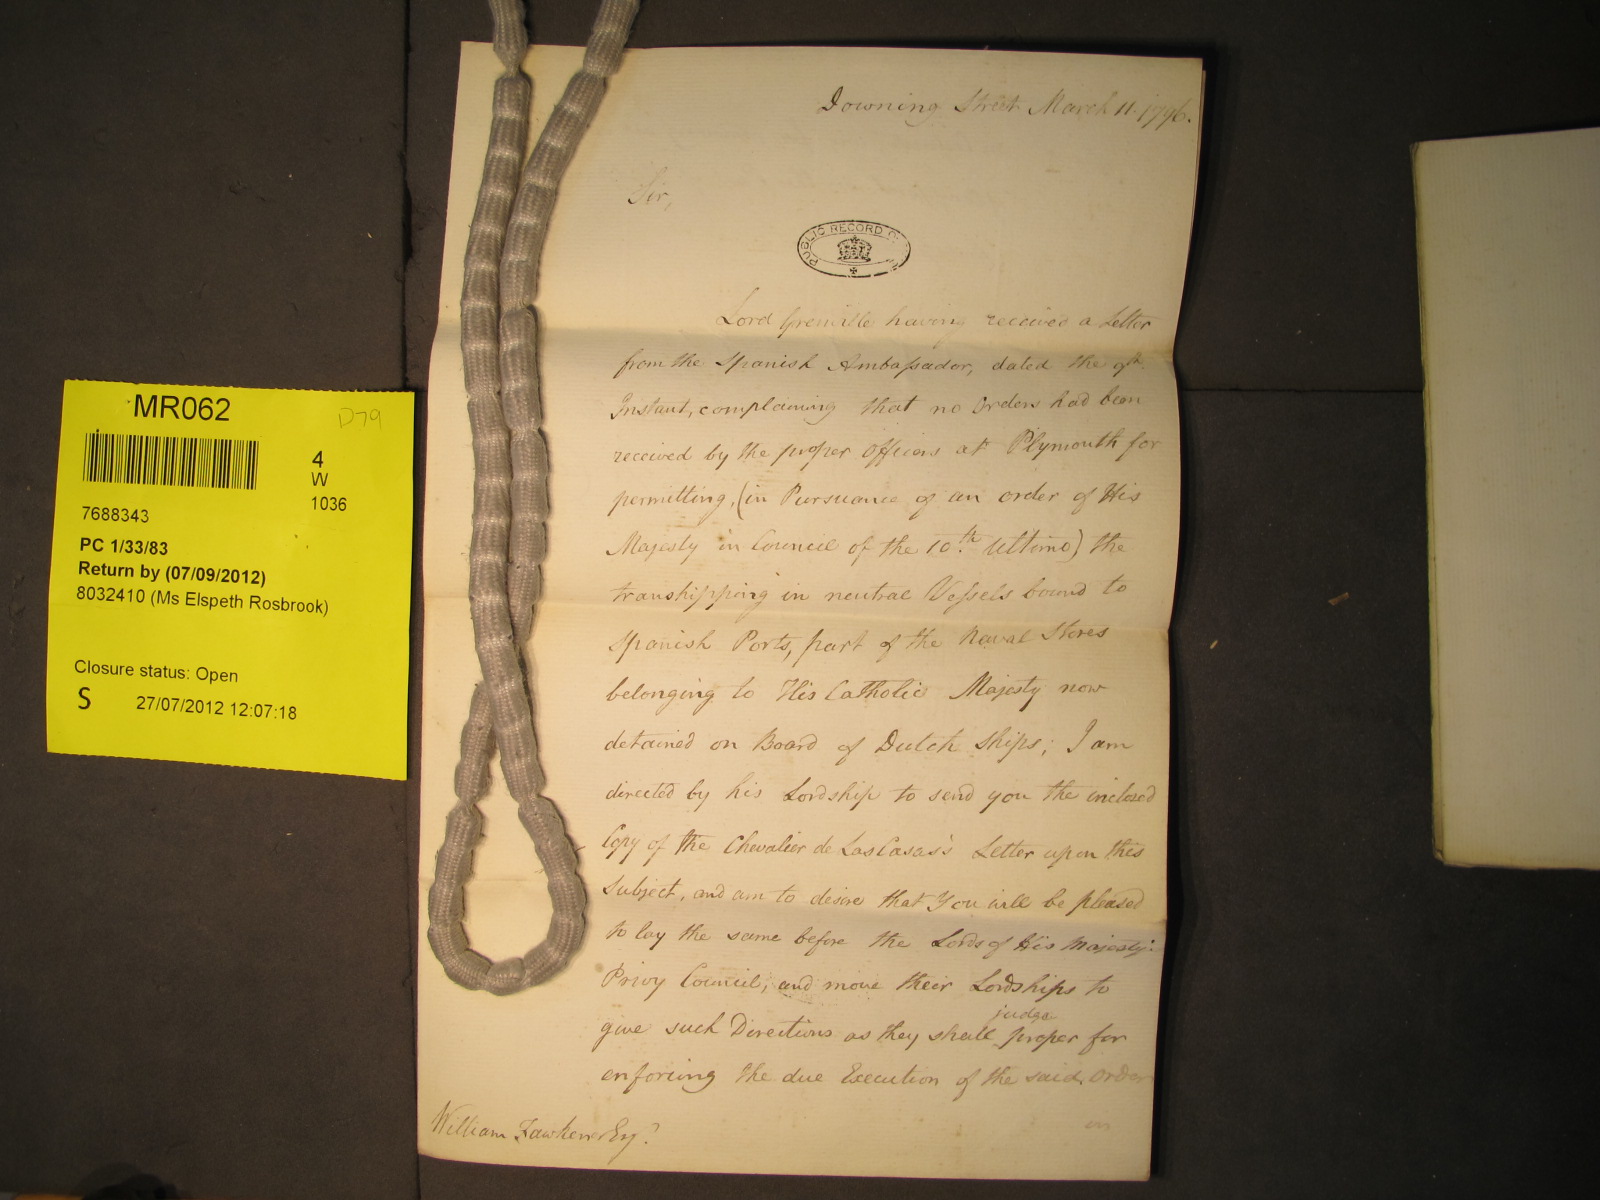 Downing Street March 11. 1796.
Sir,
PUBLIC RECORD
Lord Grenville having received a Letter
from the Spanish Ambassador, dated the 9th
Instant, complaining that no Orders had been
received by the proper Officers at Plymouth for
permitting, (in Pursuance of an order of His
Majesty in Council of the 10th. Ultimo) the
transhipping in neutral Vessels bound to
Spanish Ports, part of the Naval Stores
belonging to His Catholic Majesty now
detained on Board of Dutch Ships; I am
directed by his Lordship to send you the inclosed
Copy of the Chevalier de Las Casas's Letter upon this
Subject, and am to desire that You will be pleased
to lay the same before the Lords of His Majesty's
Privy Council, and move their Lordships to
give such Directions as they shall judge proper for
enforcing the due Execution of the said Order
in
William Fawkener Esqr.
MR062
D79
4
W
1036
7688343
PC 1/33/83
Return by (07/09/2012)
8032410 (Ms Elspeth Rosbrook)
Closure status: Open
S 27/07/2012 12:07:18